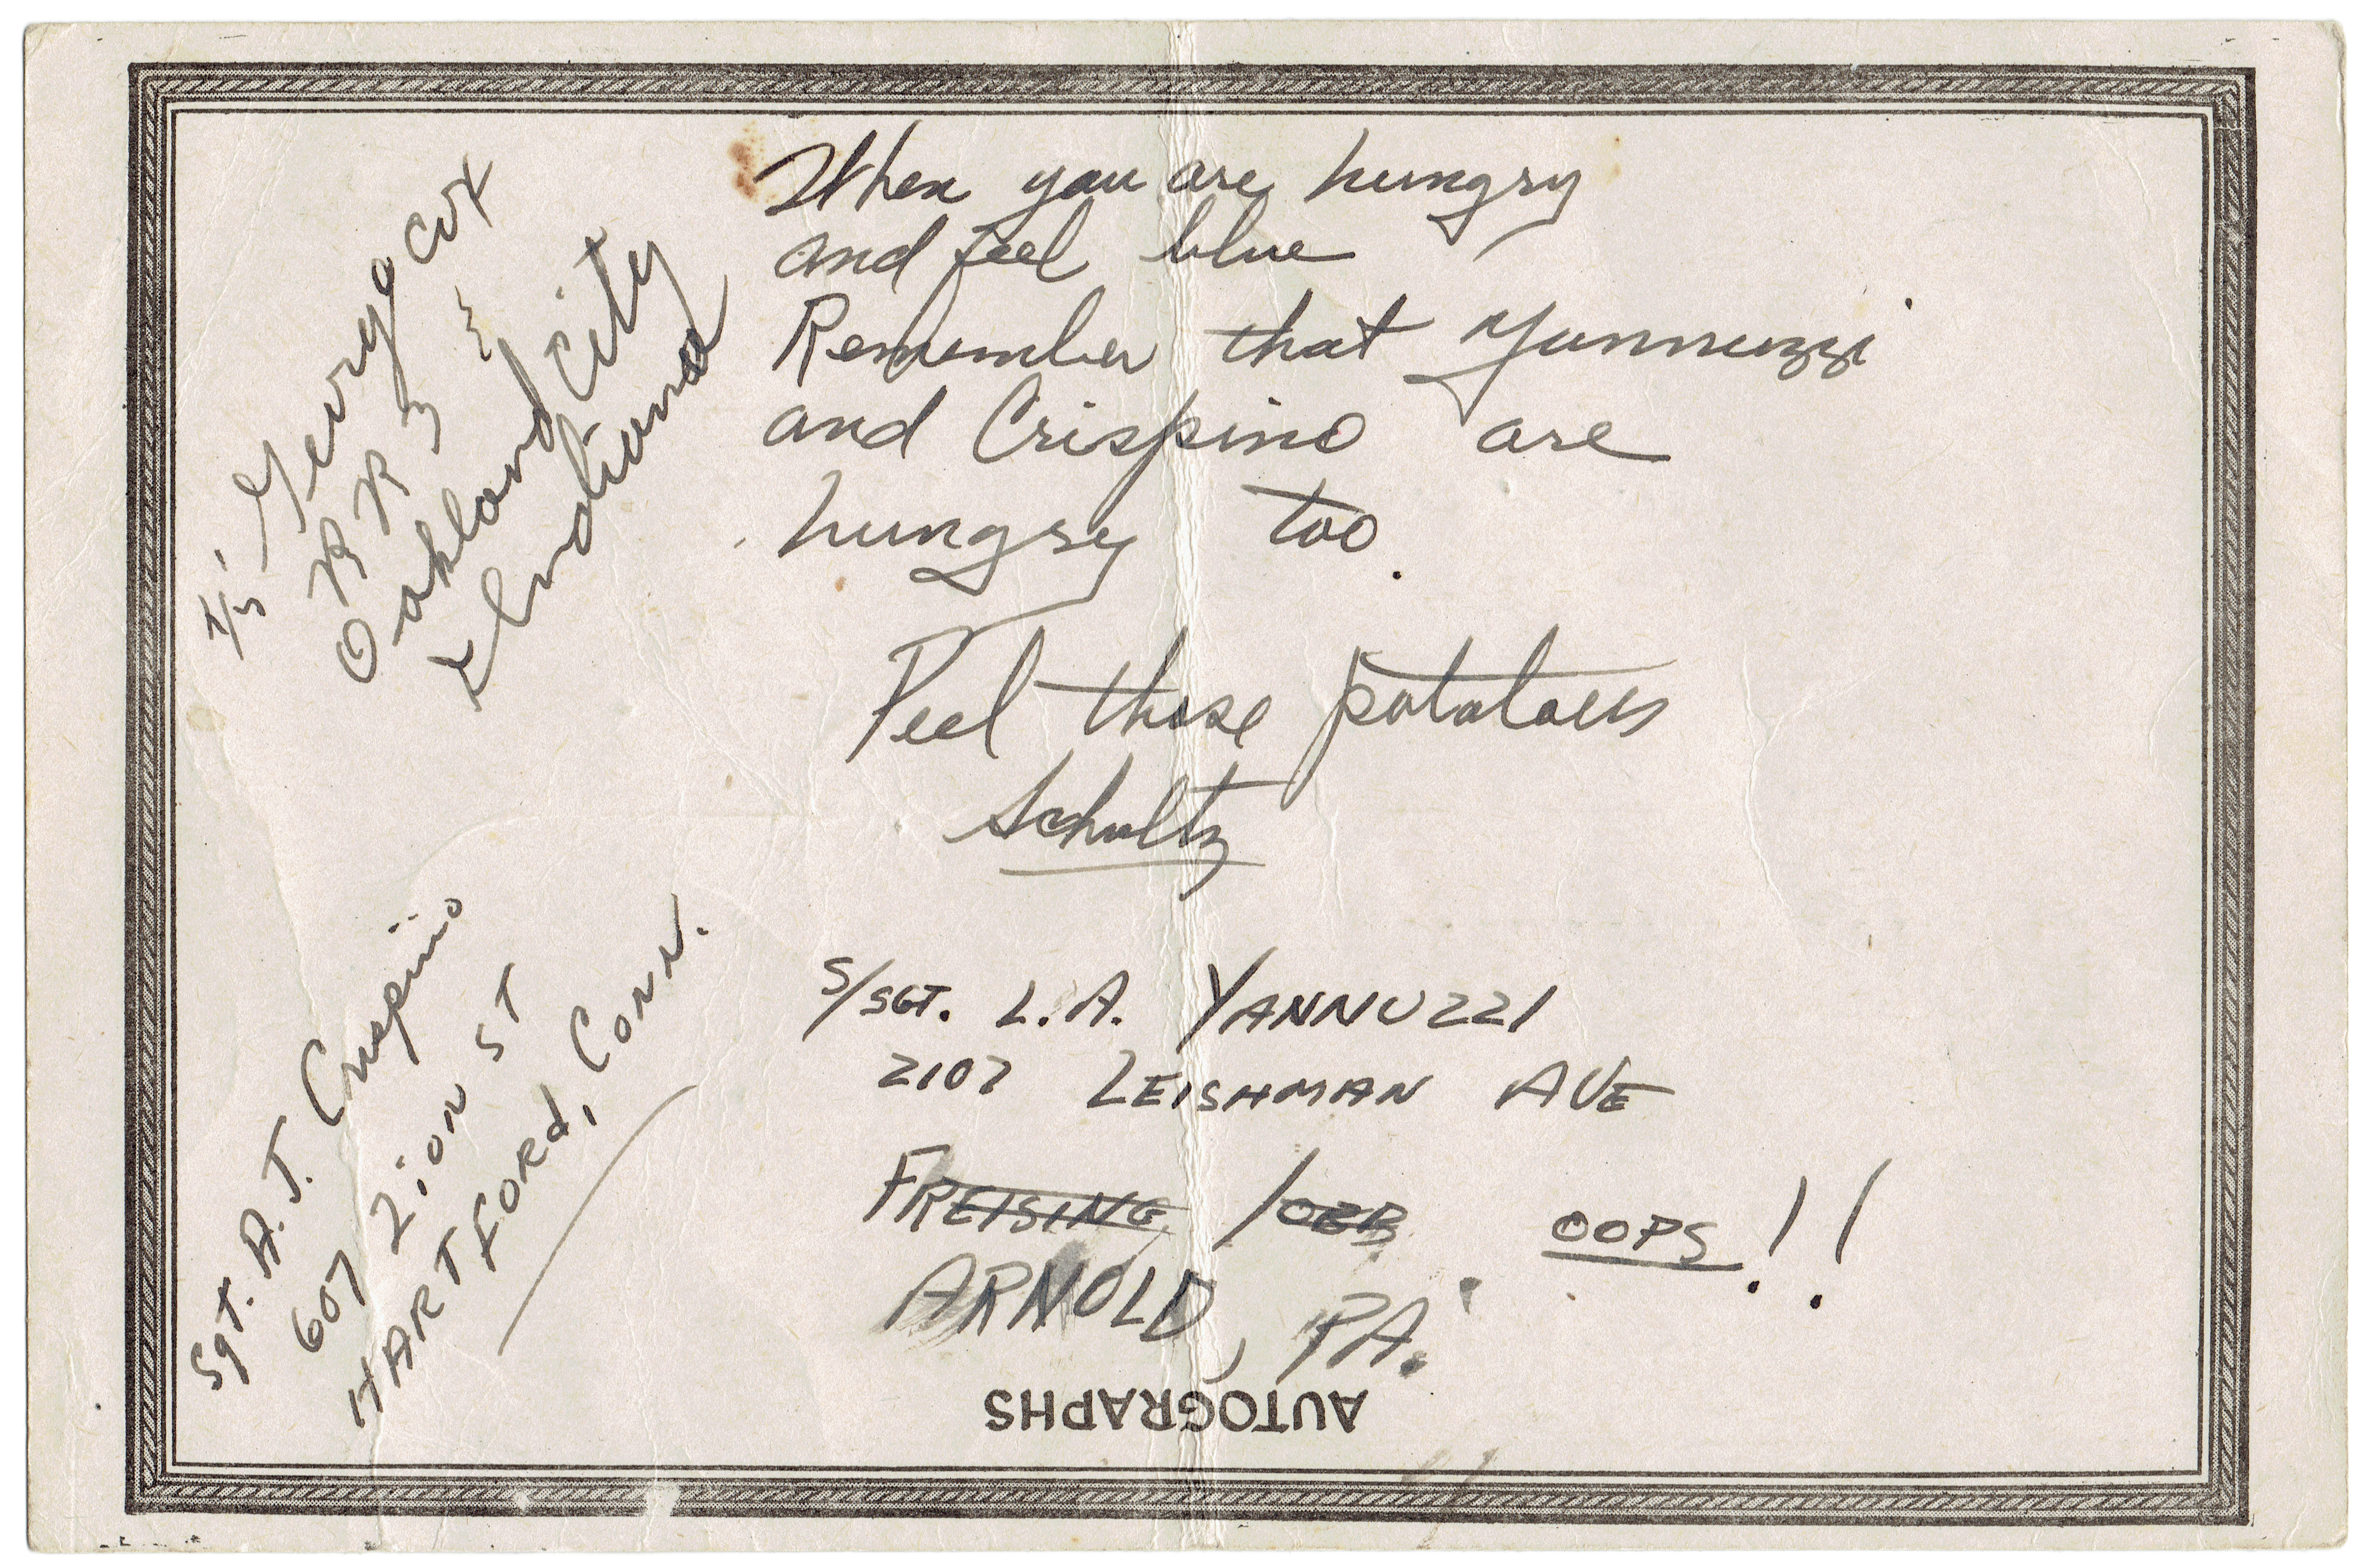 When you are hungry
and feel blue
Remember that Yannuzzi
and Crispino are
hungry too.
Peel those potatoes
Schultz
T/5 George Cox
R R 3
Oakland City
Indiana
Sgt. A. J. Crispino
607 Zion ST
HARTFORd, Conn.
S/SGT. L. A. YANNUZZI
2107 LEISHMAN AVE
FREISING /OBB OOPS!!
ARNOLD, PA.
AUTOGRAPHS